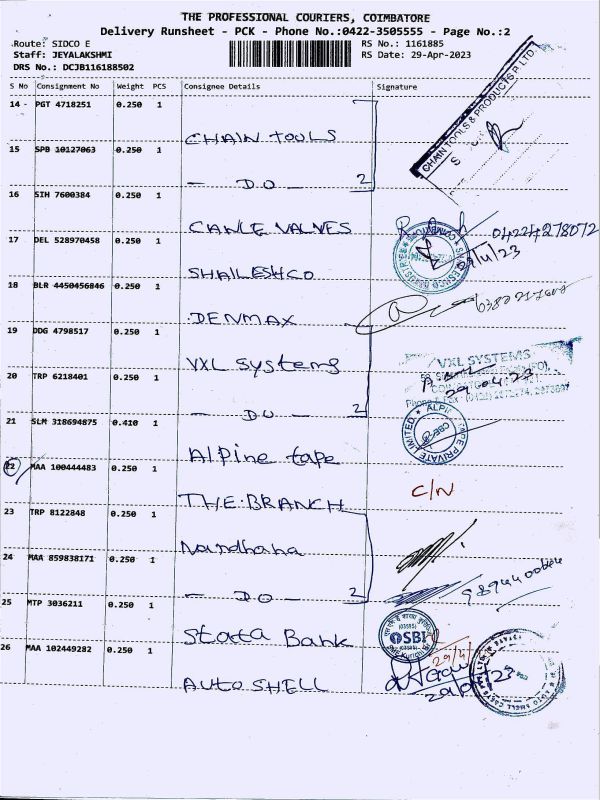 THE PROFESSIONAL COURIERS, COIMBATORE
Delivery Runsheet - PCK - Phone No.:0422-3505555 - Page No.:2
Route: SIDCO E
RS No.: 1161885
Staff: JEYALAKSHMI
RS Date: 29-Apr-2023
DRS No.: DCJB116188502
S No Consignment No Weight PCS Consignee Details Signature
14 PGT 4718251 0.250 1 CHAIN TOOLS
CHAIN TOOLS & PRODUCTS P LTD.
15 SPB 10127063 0.250 1 - DO - 2
16 SIH 7600384 0.250 1 CANLE VALVES
17 DEL 528970458 0.250 1 SHAILESHCO
18 BLR 4450456846 0.250 1 DENMAX
19 DDG 4798517 0.250 1 VXL systems
VXL SYSTEMS
29.04.23
20 TRP 6218401 0.250 1 - DO - 2
21 SLM 318694875 0.410 1 Alpine tape
22 MAA 100444483 0.250 1 THE BRANCH C/N
23 TRP 8122848 0.250 1 Nandhana
24 MAA 859838171 0.250 1 - DO - 2
25 MTP 3036211 0.250 1 Stata Bank
SBI
26 MAA 102449282 0.250 1 AUTO SHELL